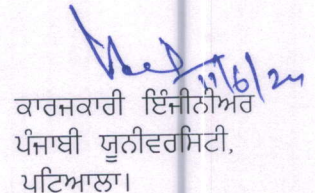 11/6/24
ਕਾਰਜਕਾਰੀ ਇੰਜੀਨੀਅਰ
ਪੰਜਾਬੀ ਯੂਨੀਵਰਸਿਟੀ,
ਪਟਿਆਲਾ।